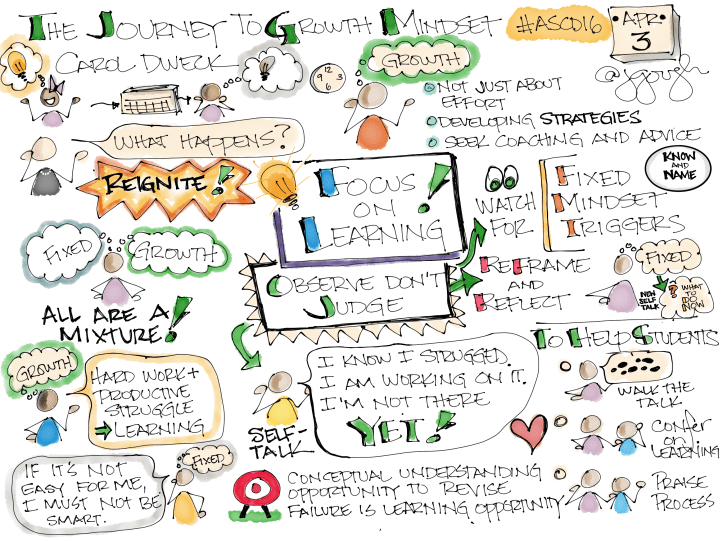 THE JOURNEY TO GROWTH MINDSET
#ASCD16
APR
3
CAROL DWECK
@jgough
12
9 3
6
GROWTH
NOT JUST ABOUT
EFFORT
DEVELOPING STRATEGIES
SEEK COACHING AND ADVICE
WHAT HAPPENS?
REIGNITE!
FOCUS
ON
LEARNING!
WATCH
FOR
FIXED
MINDSET
TRIGGERS
KNOW
AND
NAME
FIXED
GROWTH
ALL ARE A
MIXTURE!
OBSERVE DON'T
JUDGE
REFRAME
AND
REFLECT
FIXED
NEW
SELF
TALK
?
WHAT
TO
DO
NOW
GROWTH
HARD WORK +
PRODUCTIVE
STRUGGLE
LEARNING
I KNOW I STRUGGED.
I AM WORKING ON IT.
I'M NOT THERE
YET!
SELF-
TALK
TO HELP STUDENTS
WALK THE
TALK
CONFER
ON
LEARNING
PRAISE
PROCESS
IF IT'S NOT
EASY FOR ME,
I MUST NOT BE
SMART.
FIXED
CONCEPTUAL UNDERSTANDING
OPPORTUNITY TO REVISE
FAILURE IS LEARNING OPPORTUNITY